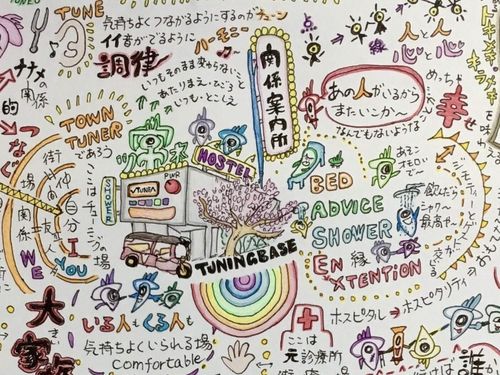 TUNE
気持ちよくつながるようにするのがチューン
11音がでるように
ハーモニー
調律
いつもそのまま変わらないこと
あたりまえ・むこうと
いつも・とこえ
ナナメの関係
的
つなぐ
TOWN
TUNER
であろう
街
仲間
自分
I
YOU
WE
場
関係
友人
ここはチューニングの場
SHOWER
PWR
TUNEA
HOSTEL
TUNINGBASE
関係案内所
人と人
縁
心と心
ドキドキ
キラキラ
あの人がいるから
またいこか〜
なんでもないような
めっちゃ
幸せ
BED
ADVICE
SHOWER
EN
縁
XTENTION
あそこ
オモロい
で〜
飲んだら
シャワー
最高や〜
大家族
いる人もくる人も
気持ちよくいられる場
comfortable
ホスピタル→ホスピタリティ
ここは
元診療所
誰